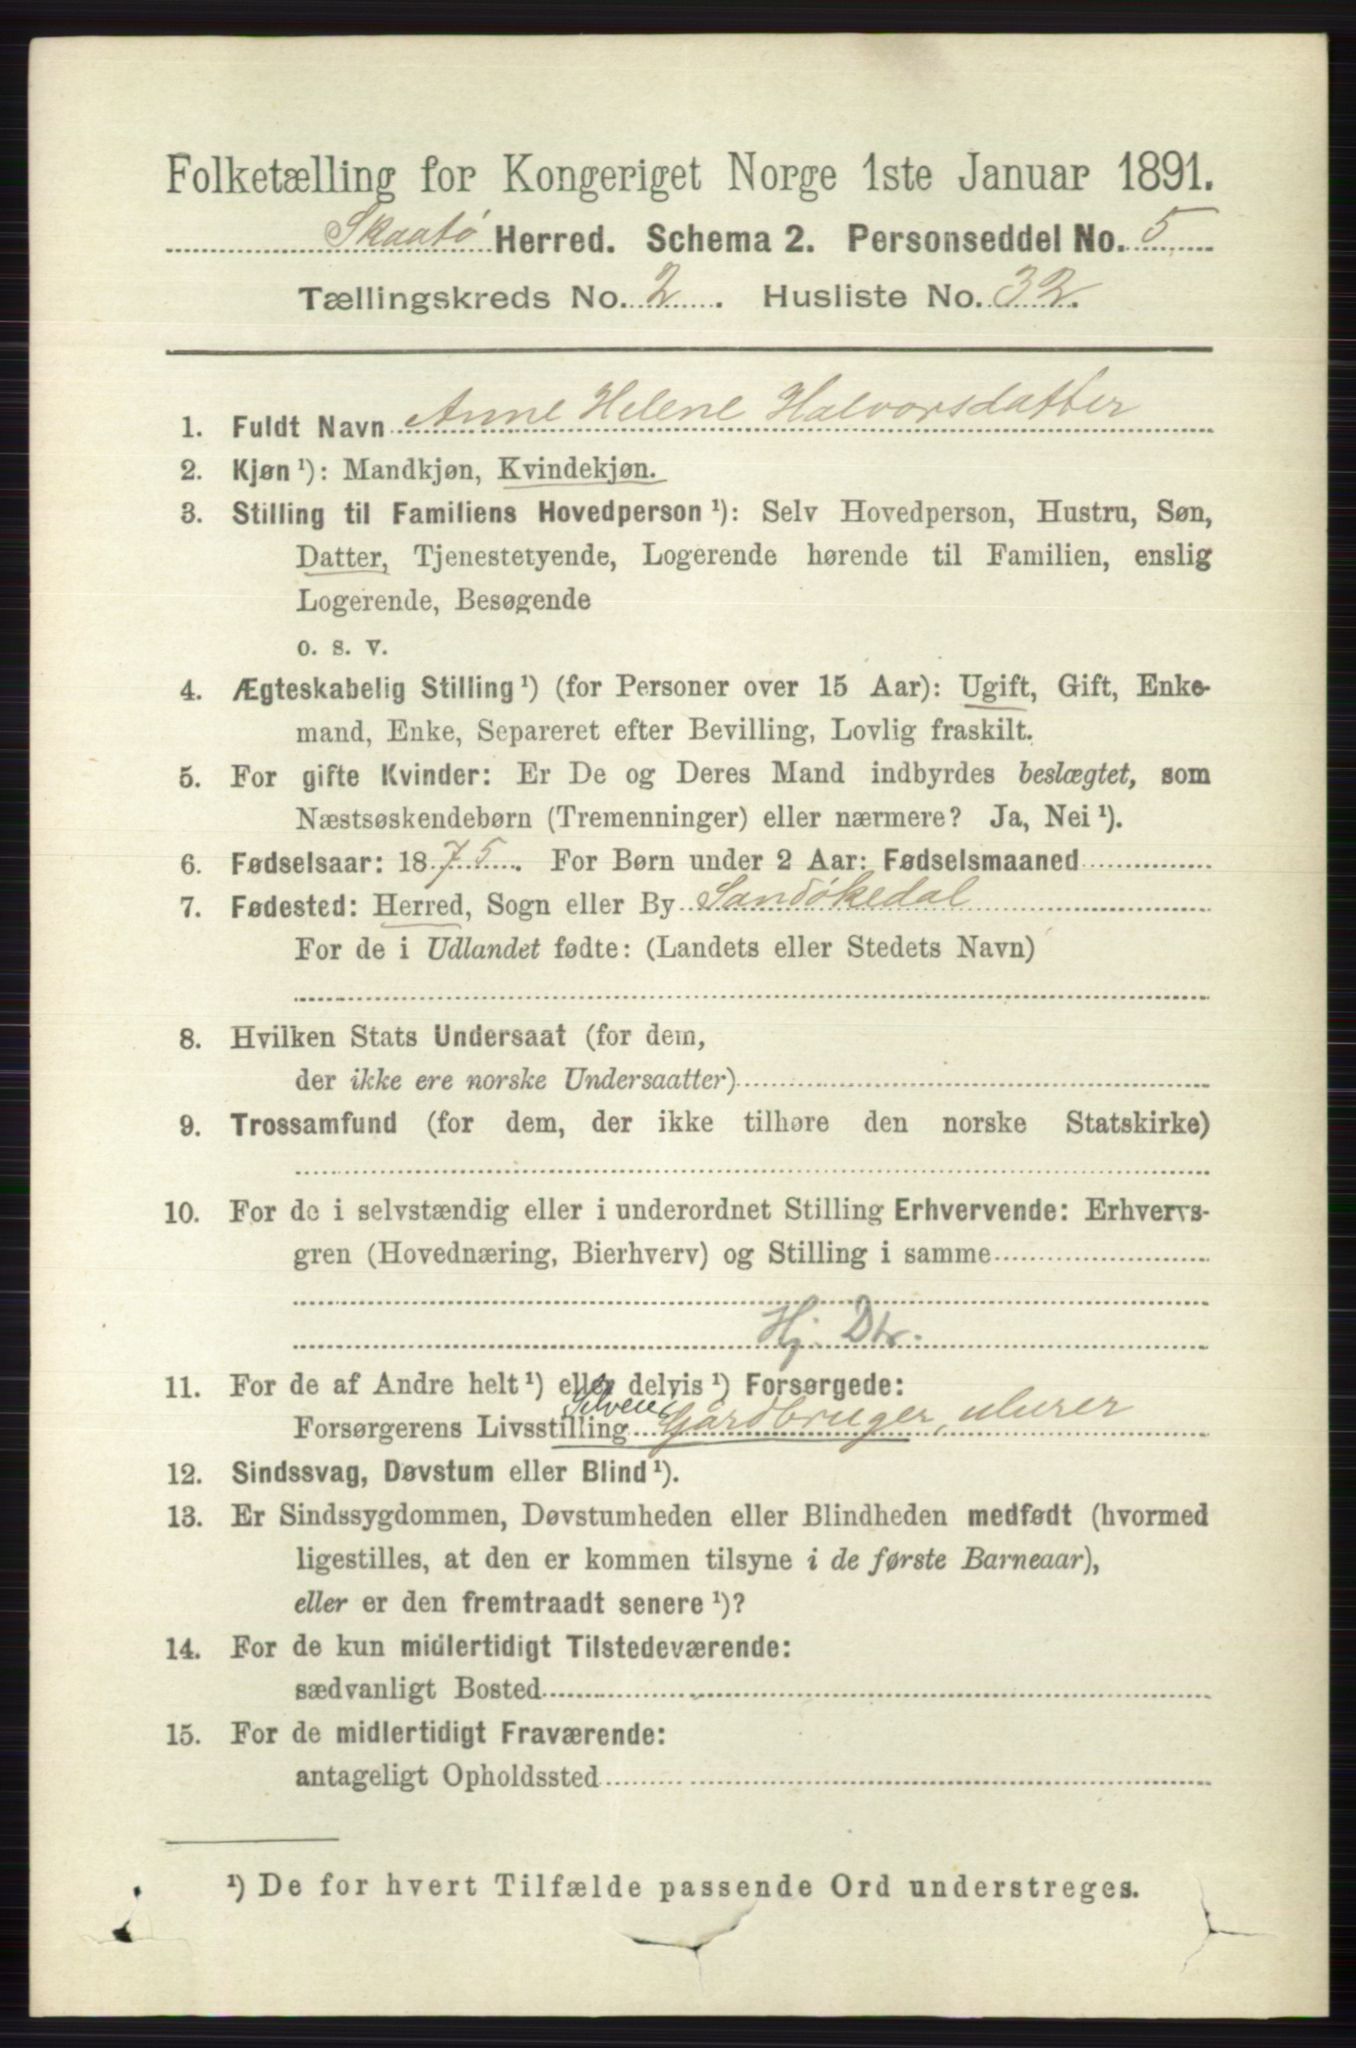 Folketælling for Kongeriget Norge 1ste Januar 1891.
Skaatø Herred. Schema 2. Personseddel No. 5
Tællingskreds No. 2. Husliste No. 32.
1. Fuldt Navn Anne Helene Halvorsdatter
2. Kjøn ¹): Mandkjøn, Kvindekjøn.
3. Stilling til Familiens Hovedperson ¹): Selv Hovedperson, Hustru, Søn,
Datter, Tjenestetyende, Logerende hørende til Familien, enslig
Logerende, Besøgende
o. s. v.
4. Ægteskabelig Stilling ¹) (for Personer over 15 Aar): Ugift, Gift, Enke-
mand, Enke, Separeret efter Bevilling, Lovlig fraskilt.
5. For gifte Kvinder: Er De og Deres Mand indbyrdes beslægtet, som
Næstsøskendebørn (Tremenninger) eller nærmere? Ja, Nei ¹).
6. Fødselsaar: 1875. For Børn under 2 Aar: Fødselsmaaned
7. Fødested: Herred, Sogn eller By Sandøkedal
For de i Udlandet fødte: (Landets eller Stedets Navn)
8. Hvilken Stats Undersaat (for dem,
der ikke ere norske Undersaatter)
9. Trossamfund (for dem, der ikke tilhøre den norske Statskirke)
10. For de i selvstændig eller i underordnet Stilling Erhvervende: Erhvervs-
gren (Hovednæring, Bierhverv) og Stilling i samme
Hj. Dtr.
11. For de af Andre helt ¹) eller delvis ¹) Forsørgede:
Selveie
Forsørgerens Livsstilling Gårdbruger, murer
12. Sindssvag, Døvstum eller Blind ¹).
13. Er Sindssygdommen, Døvstumheden eller Blindheden medfødt (hvormed
ligestilles, at den er kommen tilsyne i de første Barneaar),
eller er den fremtraadt senere ¹)?
14. For de kun midlertidigt Tilstedeværende:
sædvanligt Bosted
15. For de midlertidigt Fraværende:
antageligt Opholdssted
¹) De for hvert Tilfælde passende Ord understreges.